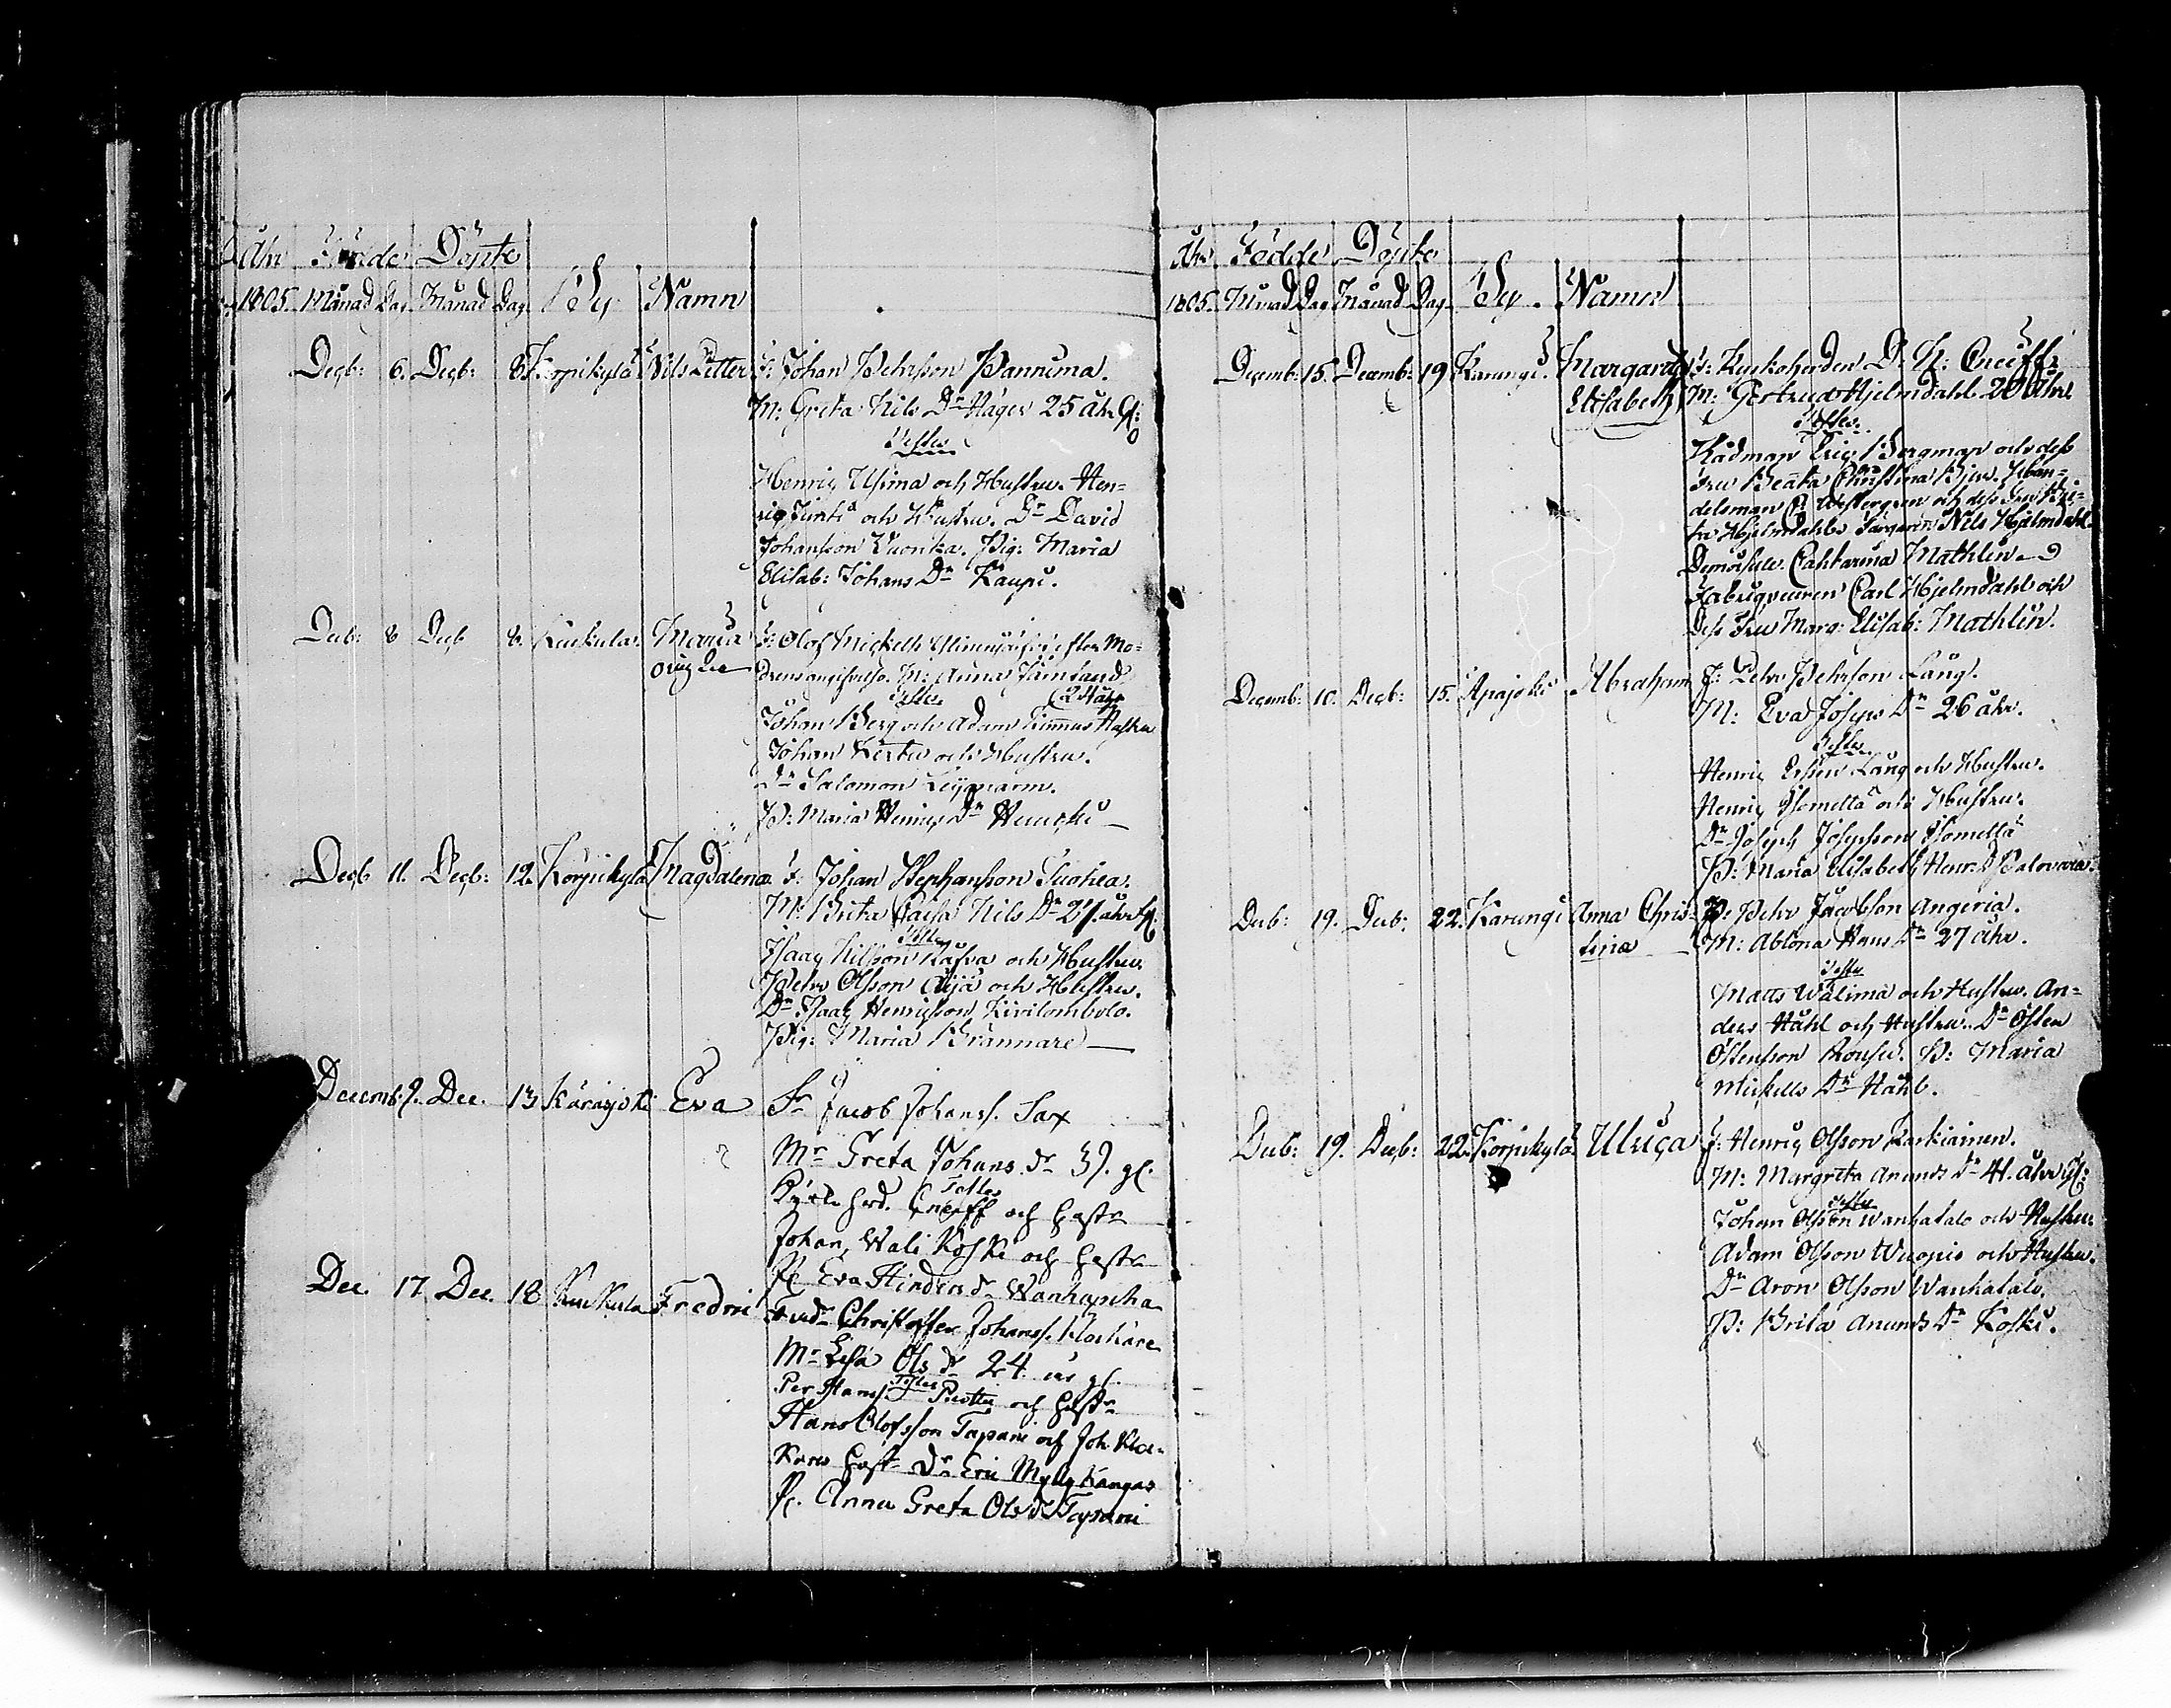 Åhr Födde Döpte
1805. Månad Dag. Månad Dag. By Namn
Decb: 6. Decb: 8. Korpikylä Nils Petter F: Johan Pehrsson Pannima.
M: Greta Nils Dr Häger 25 åhr gl:
Testes
Henric Usima och Hustru. Hen=
ric Junti och Hustru. Dr David
Johansson Vuonka. Pig: Maria
Elisab: Johans Dr Kaupi.
Decb: 8 Decb 8. Kuckula. Maria F: Olof Mickels efter Mo=
oägta drens angifvelse. M: Anna
Testes
Johan Berg och Adam Hustru
Johan och Hustru.
Dr Salomon
P: Maria Henrics Dr
Decb 11. Decb: 12. Korpikylä Magdalena. F: Johan Stephansson Tuohea.
M: Brita Caisa Nils Dr 27. åhr gl.
Testes
Isaac Nilsson och Hustru.
Pehr Olsson Äijä och Hustru.
Dr Isaac Henricsson Kivilombolo.
Pig: Maria Brännare
Decemb: 9. Dec. 13 Karajoki Eva Fr Jacob Johanss. Sax
Mr Greta Johans dr 39. gl.
Testes
Kyrko herd. Cneiff och hustr
Johan Wali Koski och hustr
Pl Eva Hindrs dr
Dec. 17 Dec. 18 Kuckula Fredric Christoffer Johanss.
Mr Lisa Ols dr 24 års gl.
Testes
Per Hanss. och hustr
Hans Olofsson Tapani och Joh.
hustr Dr Eric Mylly Kangas
Pl. Anna Greta Ols dr Tapani
Åhr. Födde Döpte
1805. Månad Dag Månad Dag. By. Namn
Decemb: 15. Decemb: 19 Karungi. Margareta F: Kyrkoherden D. N: Cneiff.
Elisabeth M: Gertrud Hjelmdahl 20 åhr
Testes.
Rådman Eric Bergman och dess
Fru Beata Christina Bjur. Han=
delsman Westergren och dess Fru
Hjelmdahl. Nils Hjelmdahl.
Demoiselle Catharina Mathlin
Fabriqueuren Carl Hjelmdahl och
Dess Fru Marg: Elisab: Mathlin.
Decemb: 10. Decb: 15. Apajoki Abraham F: Pehr Pehrsson Lång.
M: Eva Joseps Dr 26 åhr.
Testes.
Henric Ersson Lång och Hustru.
Henric och Hustru.
Dr Joseph Josephsson
P: Maria Elisabeth Henr: Dr Palovara.
Decb: 19. Decb: 22. Karungi Anna Chris= F: Pehr Jacobsson Angeria.
tina M: Ablona Hans Dr 27 åhr.
Testes
Matts Wälimä och Hustru. An=
ders Håhl och Hustru. Dr Östen
Östensson P: Maria
Mickells Dr Håhl.
Decb: 19. Decb: 22. Korpikylä. Ulrica F: Henric Olsson Karkiainen.
M: Margreta Anunds Dr 41. åhr gl:
Testes
Johan Olsson Wanhatalo och Hustru
Adam Olsson Wuopio och Hustru.
Dr Aron Olsson Wanhatalo.
P: Brita Anunds Dr Koski.